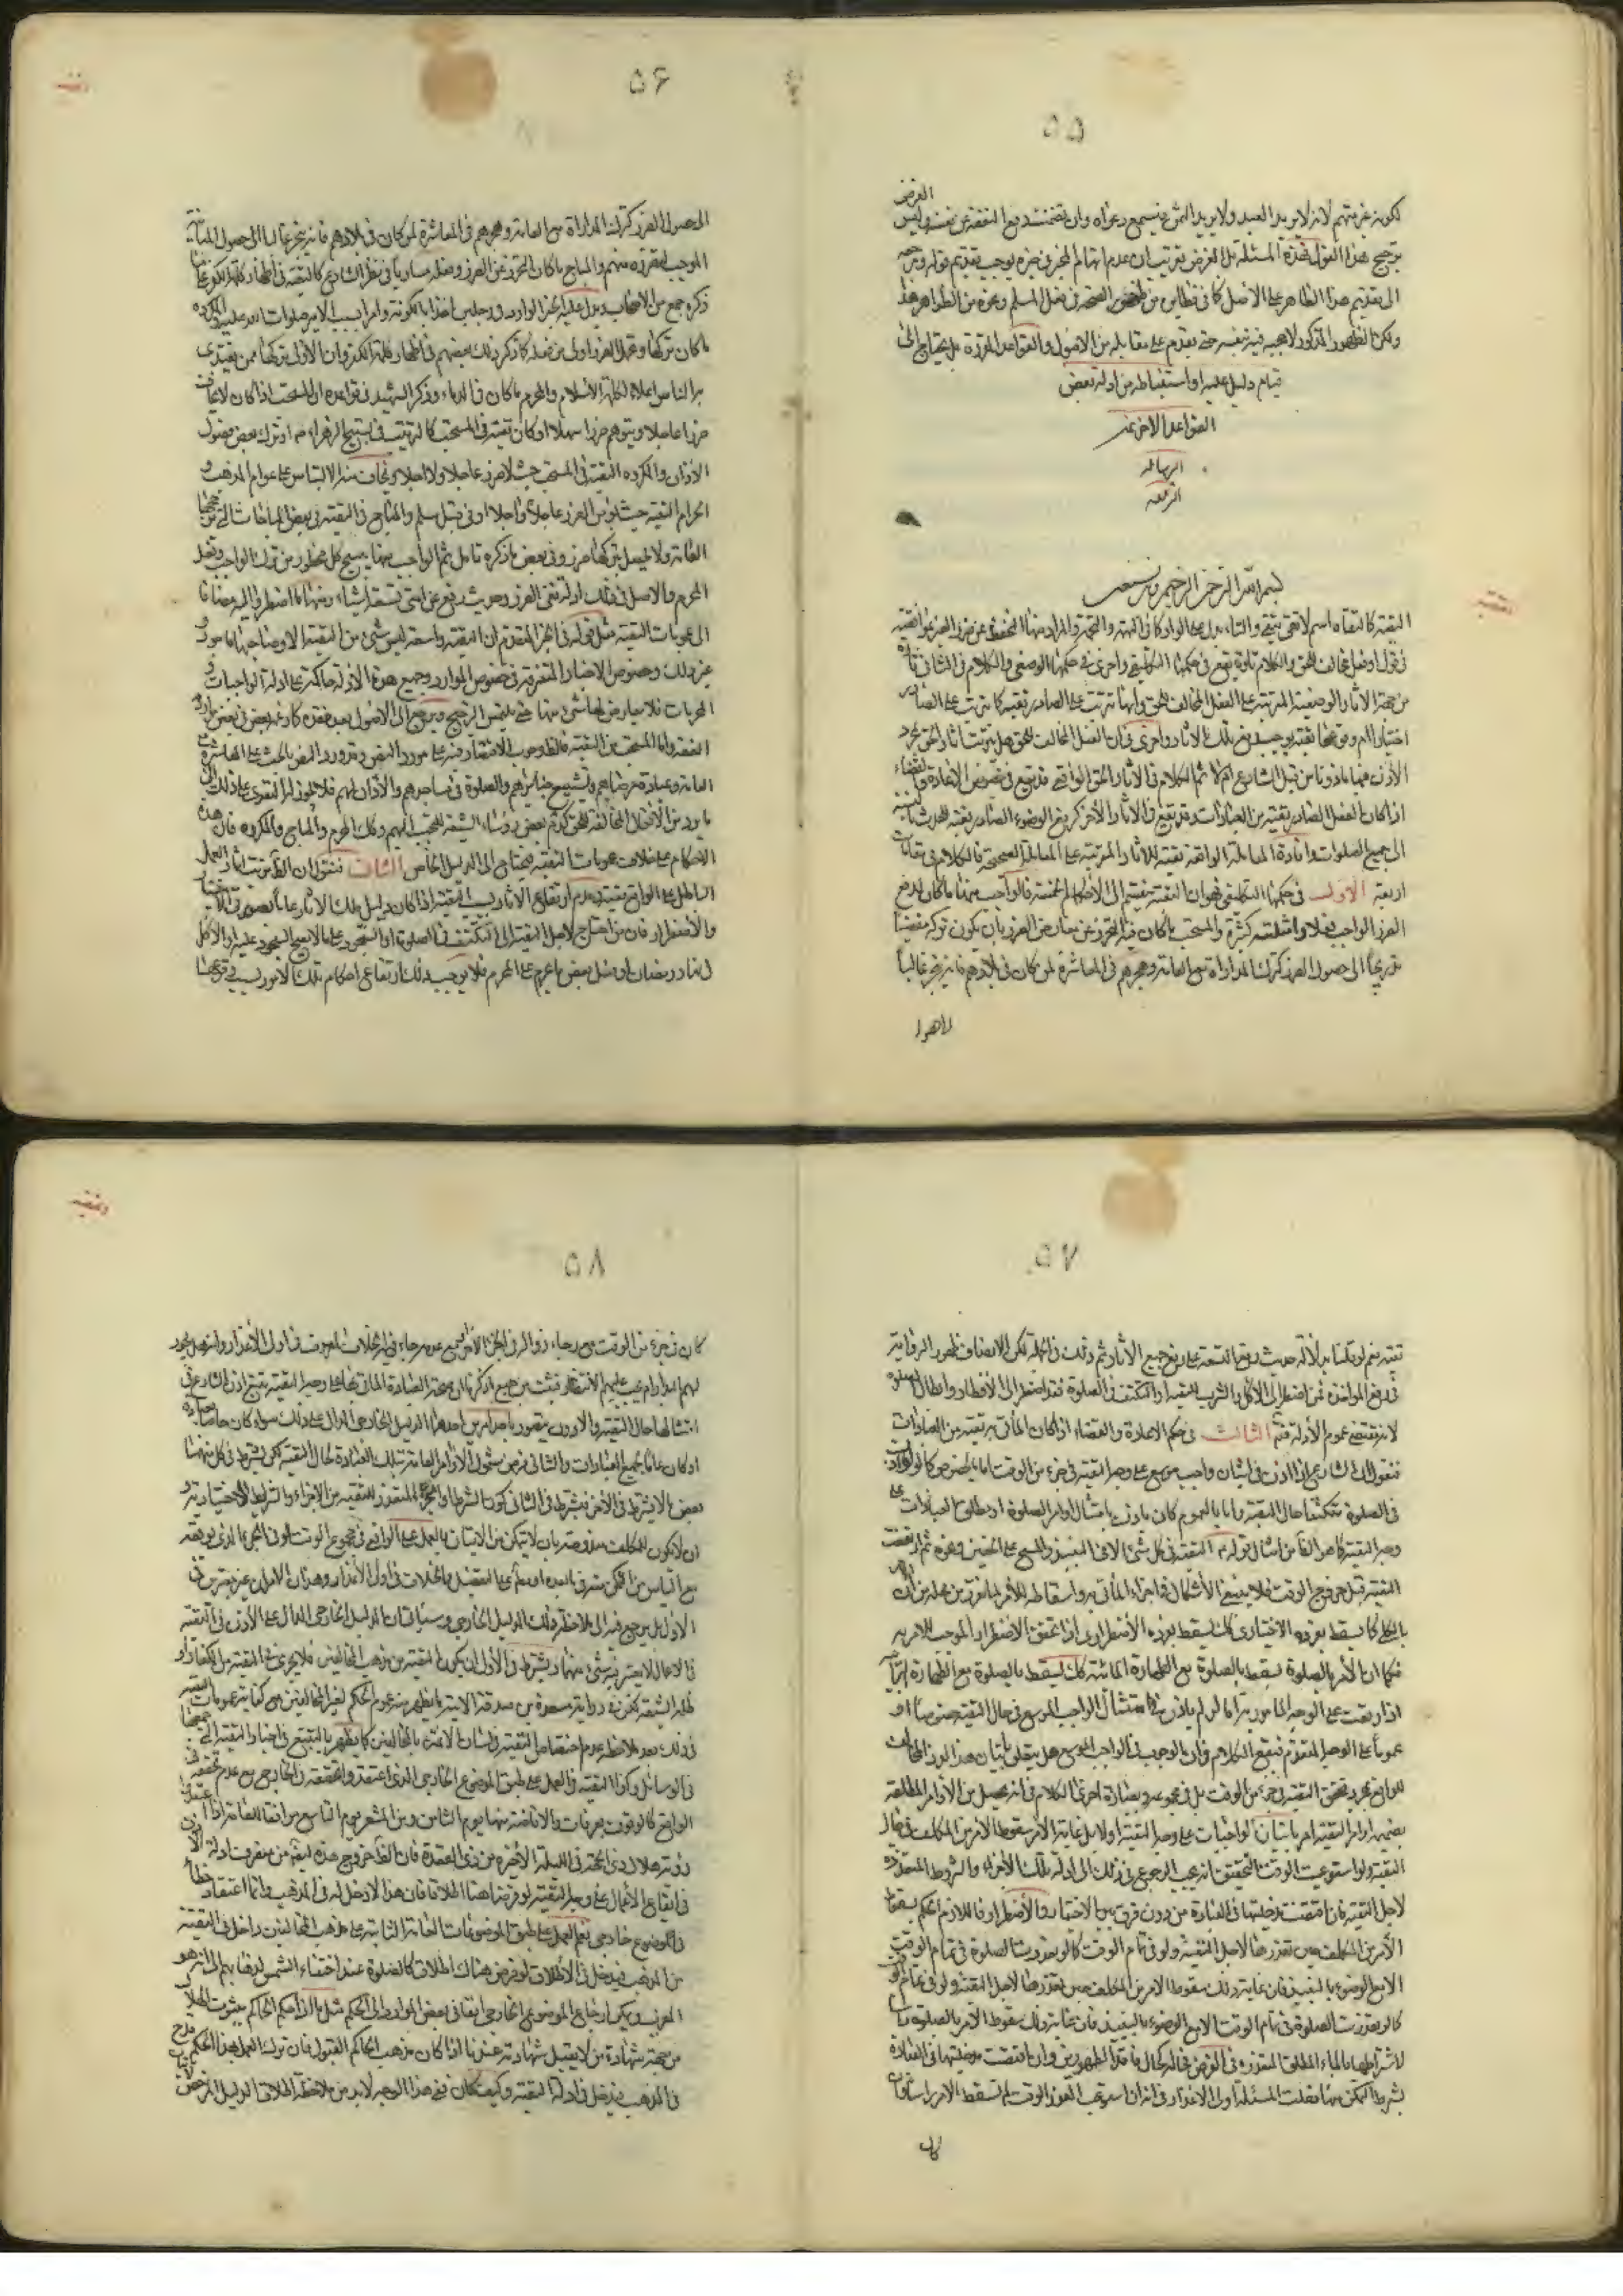 ۵۵
لكونه غريمهم لانه لا يريد العبد ولا يريد الثمن فيسمع دعواه وان تضمنت دفع النفقة عن نفسه وليس الغرض
ترجيح هذا القول في هذه المسئلة بل الغرض تقريب ان عدم اتهام المخبر في خبره يوجب تقديم قوله ومرجعه
الى تقديم هذا الظاهر على الأصل كما في نظائره من ظهور الصحة في فعل المسلم ونحوه من الظواهر هذا
ولكن الظهور المذكور لا حجية فيه بنفسه حتى يقدم على مقابله من الاصول والقواعد المقررة بل يحتاج الى
قيام دليل عليه او استنباطه من ادلة بعض
القواعد الاخر
الرسالة
الرابعة
بسم الله الرحمن الرحيم وبه نستعين
التقية كالتقاة اسم لاتقى يتقي والتاء بدل عن الواو كما في التهمة والتخمة والمراد منها التحفظ عن ضرر الغير بموافقته
في قول او فعل مخالف للحق والكلام تارة يقع في حكمها التكليفي واخرى في حكمها الوضعي والكلام في الثاني تارة
من جهة الآثار الوضعية المترتبة على الفعل المخالف للحق وانها تترتب على الصادر تقية كما تترتب على الصادر
اختيارا ام وقوعها تقية يوجب رفع تلك الآثار واخرى في ان الفعل المخالف للحق هل يترتب عليه آثار الحق بمجرد
الاذن فيها من قبل الشارع ام لا ثم الكلام في آثار الحق الواقعي قد يقع في خصوص الاعادة والقضاء
اذا كان الفعل الصادر تقية من العبادات وقد يقع في الآثار الأخر كرفع الوضوء الصادر تقية للحدث بالنسبة
الى جميع الصلوات وافادة المعاملة الواقعة تقية للآثار المترتبة على المعاملة الصحيحة فالكلام في مقامات
اربعة الأول في حكمها التكليفي فهو ان التقية تنقسم الى الأحكام الخمسة فالواجب منها ما كان لدفع
الضرر الواجب فعلا وامثلته كثيرة والمستحب ما كان فيه التحرز عن معارض الضرر بان يكون تركه مفضيا
تدريجا الى حصول الضرر كترك المداراة مع العامة وهجرهم في المعاشرة لمن كان في بلادهم فانه ينجر غالبا
۵۶
الى حصول الضرر كترك المداراة مع العامة وهجرهم في المعاشرة لمن كان في بلادهم فانه ينجر غالبا الى حصول المباينة
الموجب لتضرره منهم والمباح ما كان التحرز عن الضرر وفعله مساويا في نظر الشارع كالتقية في اظهار كلمة الكفر على ما
ذكره جمع من الأصحاب ويدل عليه الخبر الوارد في رجلين اخذا بالكوفة وامرا بسب امير المؤمنين صلوات الله عليه والمكروه
ما كان تركها وتحمل الضرر اولى من فعله كما ذكر ذلك بعضهم في اظهار كلمة الكفر وان الأولى تركها ممن يقتدي
به الناس اعلاء لكلمة الاسلام والمحرم ما كان في الدماء وذكر الشهيد في قواعده ان المستحب اذا كان لا يخاف
ضررا عاجلا ويتوهم ضررا سهلا او كان تقية في المستحب كالترتيب في تسبيح الزهراء او ترك بعض فصول
الأذان والمكروه التقية في المستحب حيث لا ضرر عاجلا ولا آجلا ويخاف منه الالتباس على عوام المذهب و
الحرام التقية حيث يؤمن الضرر عاجلا وآجلا او في قتل مسلم والمباح التقية في بعض المباحات التي ترجحها
العامة ولا يحصل بتركها ضرر وفي بعض ما ذكره تأمل ثم الواجب منها يبيح كل محظور من ترك الواجب وفعل
المحرم والاصل في ذلك ادلة نفي الضرر وحديث رفع عن امتي تسعة اشياء ومنها ما اضطروا اليه مضافا
الى عمومات التقية مثل قوله في الخبر المتقدم ان التقية واسعة ليس شيء من التقية الا وصاحبها مأجور و
غير ذلك وخصوص الاخبار المتفرقة في خصوص الموارد وجميع هذه الأدلة حاكمة على ادلة الواجبات و
المحرمات فلا يعارض بها شيء منها حتى يلتمس الترجيح ويرجع الى الأصول بعد فقده كما زعمه بعض في بعض موارد
التقية واما المستحب من التقية فالظاهر وجوب الاقتصار فيه على مورد النص وقد ورد النص بالحث على المعاشرة مع
العامة وعيادة مرضاهم وتشييع جنائزهم والصلوة في مساجدهم والأذان لهم فلا يجوز التعدي عن ذلك الى
ما لم يرد من الأفعال المخالفة للحق كذم بعض رؤساء الشيعة للتحبب اليهم وكذلك المحرم والمباح والمكروه فان هذه
الاحكام على خلاف عمومات التقية فيحتاج الى الدليل الخاص الثاني فنقول ان الظاهر ترتب آثار العمل
الباطل على الواقع تقية وعدم ارتفاع الآثار بسبب التقية اذا كان دليل تلك الآثار عاما لصورتي الاختيار
والاضطرار فان من احتاج لاجل التقية الى التكتف في الصلوة او السجود على ما لا يصح السجود عليه او الأكل
في نهار رمضان او فعل بعض ما يحرم على المحرم فلا يوجب ذلك ارتفاع احكام تلك الامور بسبب وقوعها
۵۷
تقية نعم لو قلنا بدلالة حديث رفع التسعة على رفع جميع الآثار تم ذلك في الجملة لكن الانصاف ظهور الرواية
في رفع المؤاخذة فمن اضطر الى الأكل والشرب تقية او التكتف في الصلوة فقد اضطر الى الافطار وابطال الصلوة
لانه مقتضى عموم الأدلة فتأمل الثالث في حكم الاعادة والقضاء اذا كان المأتي به تقية من العبادات
فنقول ان الشارع اذا اذن في اتيان واجب موسع على وجه التقية في جزء من الوقت اما بالخصوص كما لو اذن
في الصلوة متكتفا حال التقية واما بالعموم كان يأذن بامتثال اوامر الصلوة او مطلق العبادات على
وجه التقية كما هو الظاهر من امثال قوله التقية في كل شيء الا في النبيذ والمسح على الخفين ونحوه ثم ارتفعت
التقية قبل خروج الوقت فلا ينبغي الاشكال في اجزاء المأتي به واسقاطه للأمر لما تقرر في محله من ان الأمر
بالكلي كما يسقط بفرده الاختياري كذلك يسقط بفرده الاضطراري اذا تحقق الاضطرار الموجب للامر به
فكما ان الأمر بالصلوة يسقط بالصلوة مع الطهارة المائية كذلك يسقط بالصلوة مع الطهارة الترابية
اذا وقعت على الوجه المأمور به اما لو لم يأذن في امتثال الواجب الموسع في حال التقية خصوصا او
عموما على الوجه المتقدم فيقع الكلام في ان الوجوب في الواجب الموسع هل يتعلق باتيان هذا الفرد المخالف
للواقع بمجرد تحقق التقية في جزء من الوقت بل في مجموعه وبعبارة اخرى الكلام في انه هل يحصل من الأوامر المطلقة
بضميمة اوامر التقية امر باتيان الواجبات على وجه التقية او لا بل غاية الأمر سقوط الأمر عن المكلف في حال
التقية ولو استوعبت الوقت والتحقيق انه يجب الرجوع في ذلك الى ادلة تلك الأجزاء والشروط المتعذرة
لاجل التقية فان اقتضت مدخليتها في العبادة من دون فرق بين الاختيار والاضطرار فاللازم الحكم بسقوط
الأمر عن المكلف حين تعذرها لأجل التقية ولو في تمام الوقت كما لو تعذرت الصلوة في تمام الوقت
الا مع الوضوء بالنبيذ فان غاية ذلك سقوط الامر عن المكلف حين تعذرها لاجل التقية ولو في تمام الوقت
كما لو تعذرت الصلوة في تمام الوقت الا مع الوضوء بالنبيذ فان غاية ذلك سقوط الأمر بالصلوة رأسا
لاشتراطها بالماء المطلق المتعذر في الفرض فحاله كحال فاقد الطهورين وان اقتضت مدخليتها في العبادة
بشرط التمكن منها دخلت المسئلة في اولي الاعذار في انه ان استوعب العذر الوقت لم يسقط الامر رأسا وان
كان
۵۸
كان في جزء من الوقت مع رجاء زواله في الجزء الآخر او مع عدم رجائه فيه الخلاف المعروف في اولي الأعذار وانه هل يجوز
لهم البدار ام يجب عليهم الانتظار فثبت من جميع ما ذكرنا ان صحة العبادة المأتي بها على وجه التقية يتبع اذن الشارع في
امتثالها حال التقية والاذن متصور باحد امرين احدهما الدليل الخارجي الدال على ذلك سواء كان خاصا بعبادة
او كان عاما لجميع العبادات والثاني فرض شمول الأوامر العامة بتلك العبادة لحال التقية لكن يشترط في كل منهما
بعض ما لا يشترط في الآخر فيشترط في الثاني كون الشرط او الجزء المتعذر للتقية من الاجزاء والشرائط الاختيارية و
ان لا يكون للمكلف مندوحة بان لا يتمكن من الاتيان بالعمل على الواقع في مجموع الوقت او في الجزء الذي يوقعه
مع اليأس من التمكن منه فيما بعده او مطلقا على التفصيل والخلاف في اولي الأعذار وهذان الأمران غير معتبرين في
الأول بل يرجع فيه الى ملاحظة ذلك الدليل الخارجي وسيأتي ان الدليل الخارجي الدال على الاذن في التقية
في الاعمال لا يعتبر فيه شيء منهما ويشترط في الأول ان يكون التقية من مذهب المخالفين فلا يجري في التقية من الكفار او
ظلمة الشيعة لكن في رواية مسعدة بن صدقة الآتية ما يظهر منه عموم الحكم لغير المخالفين مع كفاية عمومات التقية
في ذلك بعد ملاحظة عدم اختصاص التقية في لسان الائمة بالمخالفين كما يظهر بالتتبع في اخبار التقية التي جمعها
في الوسائل وكذا التقية في العمل على طبق الموضوع الخارجي الذي اعتقدوا تحققه في الخارج مع عدم تحققه في
الواقع كالوقوف بعرفات والافاضة منها يوم الثامن ومن المشعر يوم التاسع موافقا للعامة اذا اعتقدوا
رؤية هلال ذي الحجة في الليلة الأخيرة من ذي القعدة فان الظاهر خروج هذه التقية من منصرف ادلة الاذن
في ايقاع الأعمال على وجه التقية لو فرض هنا اطلاق فان هذا لا دخل له في المذهب وانما اعتقاد خطأ
في موضوع خارجي نعم العمل على طبق الموضوعات العامة الثابتة على مذهب المخالفين داخل في التقية
من المذهب فيدخل في الاطلاق لو فرض هناك اطلاق كالصلوة عند اختفاء الشمس لذهابهم الى انه هو
المغرب ويمكن ارجاع الموضوع الخارجي ايضا في بعض الموارد الى الحكم مثل ما اذا حكم الحاكم بثبوت الهلال
من جهة شهادة من لا يقبل شهادته عندنا اذا كان مذهب الحاكم القبول فان ترك العمل بهذا الحكم قدح
في المذهب فيدخل في ادلة التقية وكيف كان ففي هذا الوجه لا بد من ملاحظة اطلاق الدليل المرخص